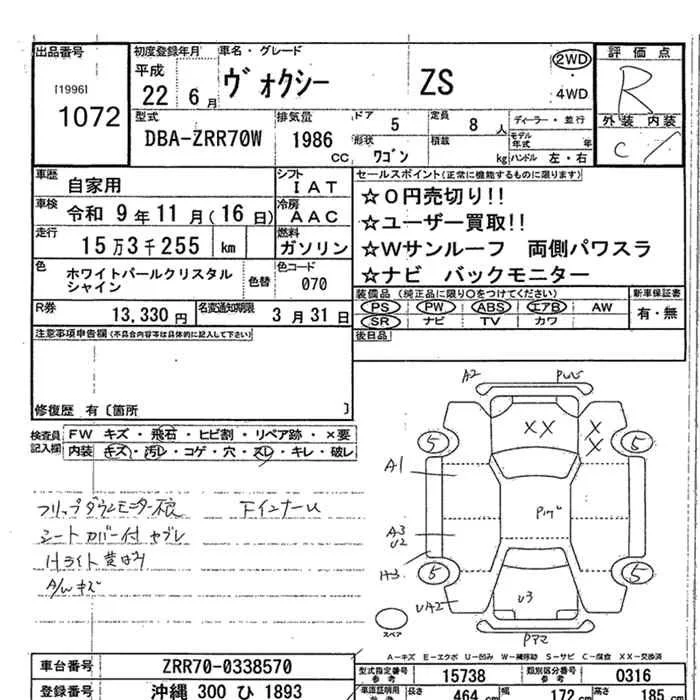 出品番号 初度登録年月 車名・グレード 評価点
[1996] 1072
平成 22 6月 ヴォクシー ZS 2WD 4WD R
型式 排気量 ドア 5 定員 8人 ディーラー・並行 外装 内装
DBA-ZRR70W 1986 CC 形状 ワゴン 積載 kg モデル年式 年 ハンドル 左・右 C
車歴 自家用 シフト IAT セールスポイント(正常に機能するものに限ります)
車検 令和 9年 11月(16日) 冷房 AAC ☆0円売切り!!
☆ユーザー買取!!
走行 15万3千255 km 燃料 ガソリン ☆Wサンルーフ 両側パワスラ
色 ホワイトパールクリスタルシャイン 色替 色コード 070 ☆ナビ バックモニター
R券 13,330円 名変通知期限 3月31日
装備品 (純正品に限り○をつけてください) 新車保証書
PS PW ABS エアB AW 有・無
SR ナビ TV カワ
後日品
注意事項申告欄(不具合内容等は具体的に記入して下さい)
修復歴 有〔箇所 〕
検査員記入欄 FW キズ・飛石・ヒビ割・リペア跡・×要
内装 キズ・汚レ・コゲ・穴・スレ・キレ・破レ
フリップダウンモニター不良 FインナーU
シートカバー付 ヤブレ
Hライト黄ばみ
A/Wキズ
A2
XX X X
5 5
A1
A3
U2
A3
5 5
UA2 U3
スペア
A-キズ E-エクボ U-凹み W-補修跡 S-サビ C-腐食 XX-交換済
車台番号 ZRR70-0338570 型式指定番号 参考 15738 類別区分番号 参考 0316
登録番号 沖縄 300 ひ 1893 車庫証明用 長さ 464 cm 幅 172 cm 高さ 185 cm